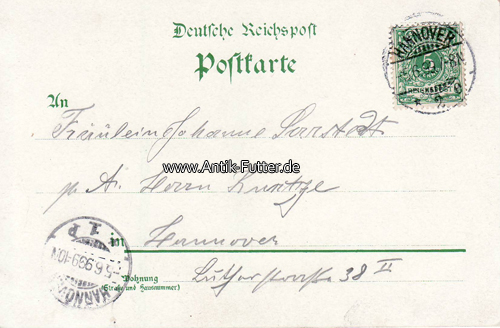 Deutsche Reichspost
Postkarte
HANNOVER
5
An
Fräulein Johanne Sarstedt
www.Antik-Futter.de
p. A. Herrn Kuntze
in Hannover
Wohnung
(Straße und Hausnummer)
Lutherstraße 38 II
1.P
5.6.99.9-10N
HANNOVER